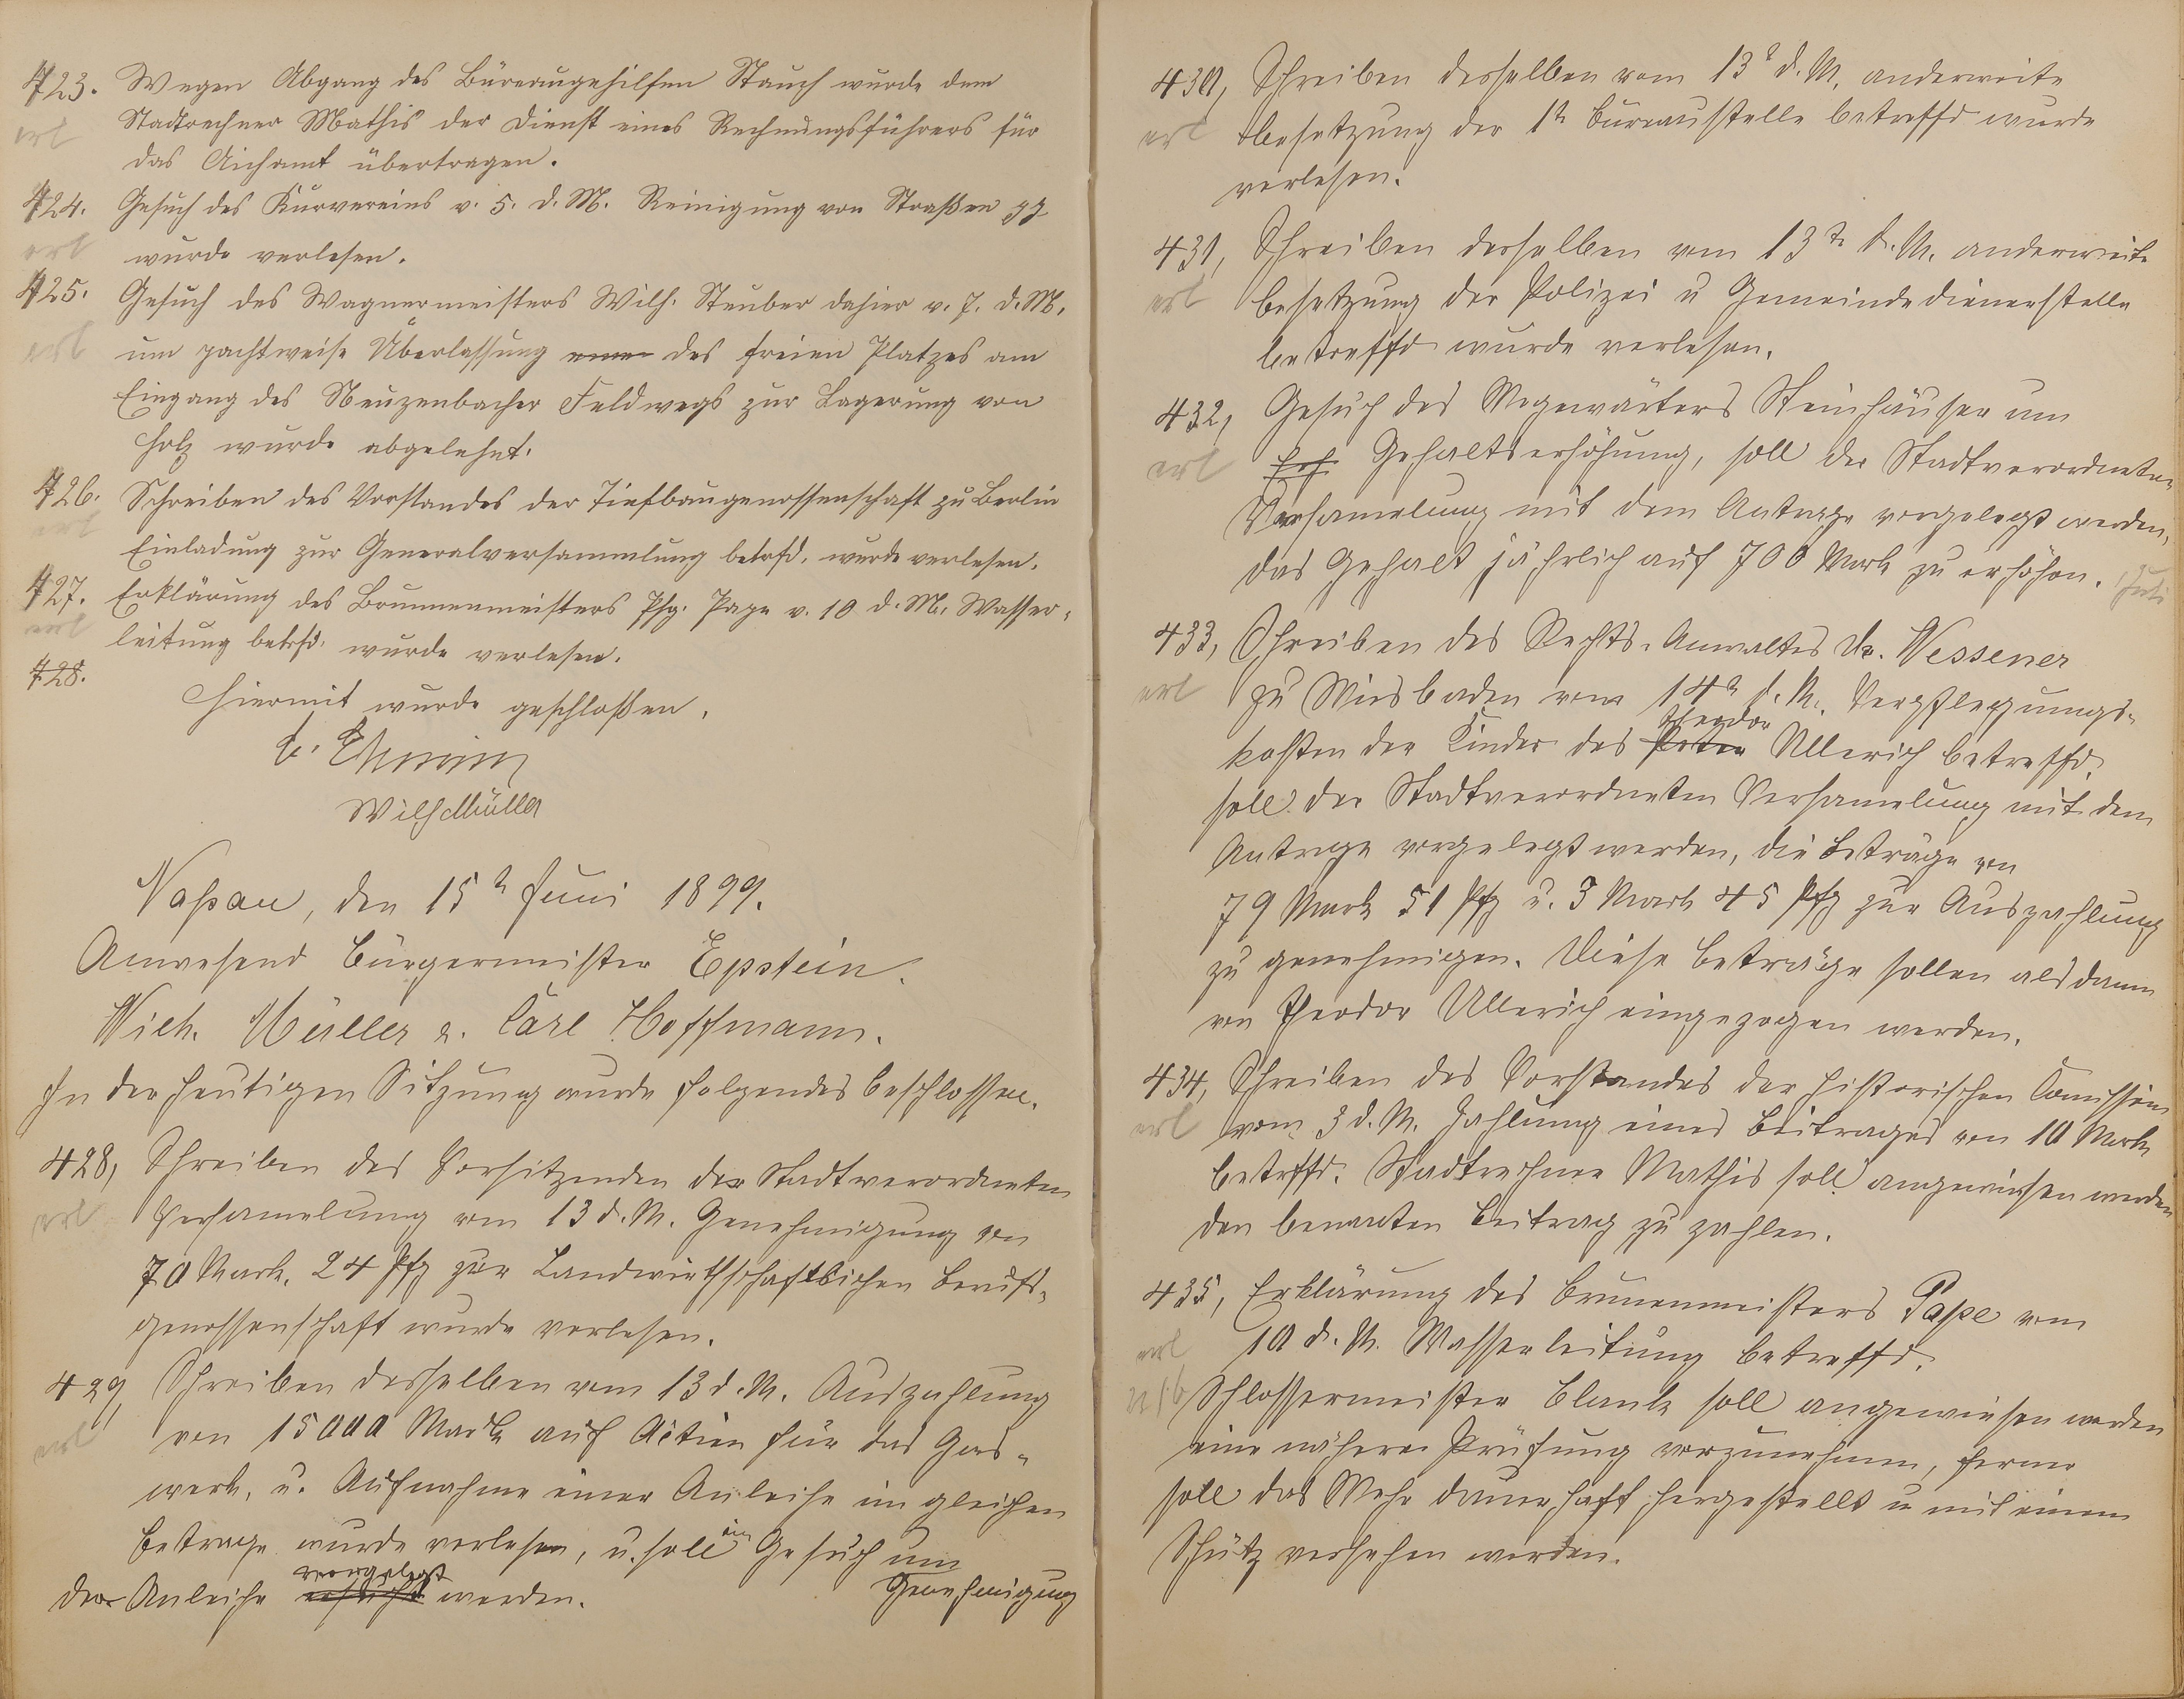 423. Wegen Abgang des Büreaugehilfen Stauch wurde dem
erl Stadtrechner Mathis der Dienst eines Rechnungsführers für
das Aichamt übertragen.
424. Gesuch des Kurvereins v. 5. d. M. Reinigung von Straßen pp
erl wurde verlesen.
425. Gesuch des Wagnermeisters Wilh. Steuber dahier v. 7. d. M.
erl um pachtweise Überlassung einer des freien Platzes am
Eingang des Neuzenbacher Feldwegs zur Lagerung von
Holz wurde abgelehnt.
426. Schreiben des Vorstandes der Tiefbaugenossenschaft zu Berlin
erl Einladung zur Generalversammlung betrfd. wurde verlesen.
427. Erklärung des Brunnenmeisters Phg. Pape v. 10 d. M. Wasser-
erl leitung betrfd. wurde verlesen.
428.
Hiermit wurde geschloßen.
Wilh Müller
Naßau, den 15t Juni 1899.
Anwesend Bürgermeister Epstein.
Wilh. Müller u. Carl Hoffmann.
In der heutigen Sitzung wurde folgendes beschlossen.
428, Schreiben des Vorsitzenden der Stadtverordneten
erl Versamelung vom 13 d. M. Genehmigung von
70 Mark. 24 Pfg zur Landwirthschaftlichen Berufs-
genossenschaft wurde verlesen.
429, Schreiben desselben vom 13 d. M. Auszahlung
erl von 15000 Mark auf Actien für das Gas-
werk, u. Aufnahme einer Anleihe im gleichen
Betrage wurde verlesen, u. soll ein Gesuch um
Genehmigung
der Anleihe ersucht vorgelegt werden.
430, Schreiben desselben vom 13t d. M. anderweite
erl Besetzung der 1te Büreaustelle betreffd wurde
verlesen.
431, Schreiben desselben vom 13te d. M. anderweite
erl Besetzung der Polizei u Gemeindedienerstelle
betreffd wurde verlesen.
432, Gesuch des Wegewärters Steinhäuser um
erl Erh Gehaltserhöhung, soll der Stadtverordneten-
Versamelung mit dem Antrage vorgelegt werden,
das Gehalt jährlich auf 700 Mark zu erhöhen.
433, Schreiben des Rechts-Anwaltes Dr. Wessener
erl zu Wiesbaden vom 14t d. M. Verpflegungs-
kosten der Kinder des Peter Theodor Ullerich betreffd.
soll der Stadtverordneten Versamelung mit dem
Antrage vorgelegt werden, die Beträge von
79 Mark 51 Pfg u. 3 Mark 45 Pfg zur Auszahlung
zu genehmigen. Diese Beträge sollen alsdann
von Theodor Ullerich eingezogen werden.
434, Schreiben des Vorstandes der historischen Comission
erl vom 3 d. M. Zahlung eines Beitrages von 10 Mark
betrffd. Stadtrechner Mathis soll angewiesen werden
den benanten Beitrag zu zahlen.
435, Erklärung des Brunenmeisters Pape vom
erl 10 d. M. Wasserleitung betreffd.
Schlossermeister Blank soll angewiesen werden
eine nähere Prüfung vorzunehmen, ferner
soll das Wehr dauerhaft hergestellt u mit einem
Schütz versehen werden.